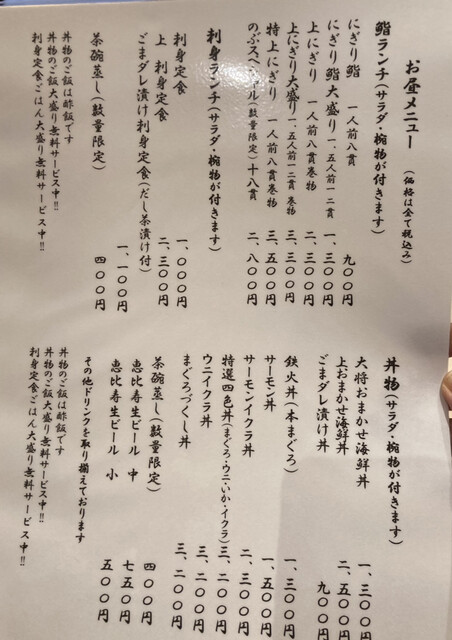 お昼メニュー (価格は全て税込み)
鮨ランチ(サラダ・椀物が付きます)
にぎり 鮨 一人前八貫 九〇〇円
にぎり 鮨 大盛り 一、五人前一二貫 一、三〇〇円
上にぎり 一人前八貫巻物 二、三〇〇円
上にぎり大盛り 一、五人前一二貫 巻物 三、三〇〇円
特上にぎり 一人前八貫巻物 三、五〇〇円
のぶスペシャル(数量限定)十八貫 二、八〇〇円
刺身ランチ(サラダ・椀物が付きます)
刺身定食 一、〇〇〇円
上 刺身定食 二、三〇〇円
ごまダレ漬け刺身定食(だし茶漬け付) 一、一〇〇円
茶碗蒸し(数量限定) 四〇〇円
丼物のご飯は酢飯です
丼物のご飯大盛り無料サービス中!!
刺身定食ごはん大盛り無料サービス中!!
丼物(サラダ・椀物が付きます)
大将おまかせ海鮮丼 一、三〇〇円
上おまかせ海鮮丼 二、五〇〇円
ごまダレ漬け丼 九〇〇円
鉄火丼(本まぐろ) 一、三〇〇円
サーモン丼 一、五〇〇円
サーモンイクラ丼 二、三〇〇円
特選四色丼(まぐろ・ウニ・いか・イクラ) 三、二〇〇円
ウニイクラ丼 三、二〇〇円
まぐろづくし丼 三、二〇〇円
茶碗蒸し(数量限定) 四〇〇円
恵比寿生ビール 中 七五〇円
恵比寿生ビール 小 五〇〇円
その他ドリンクを取り揃えております
丼物のご飯は酢飯です
丼物のご飯大盛り無料サービス中!!
刺身定食ごはん大盛り無料サービス中!!